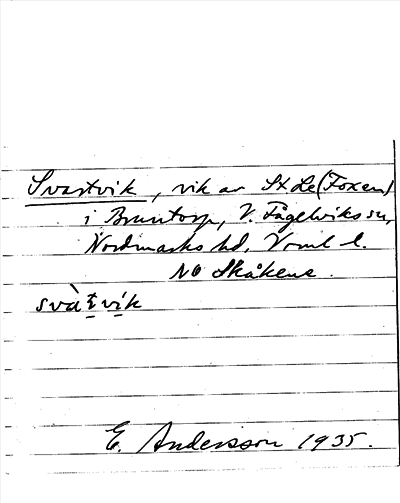 Svartvik, vik av St. Le (Foxen)
i Bruntorp, V. Fågelviks sn,
Nordmarks hd, Vrml l.
NO Skåkene.
svàt̠vi̠k
E. Andersson 1935.